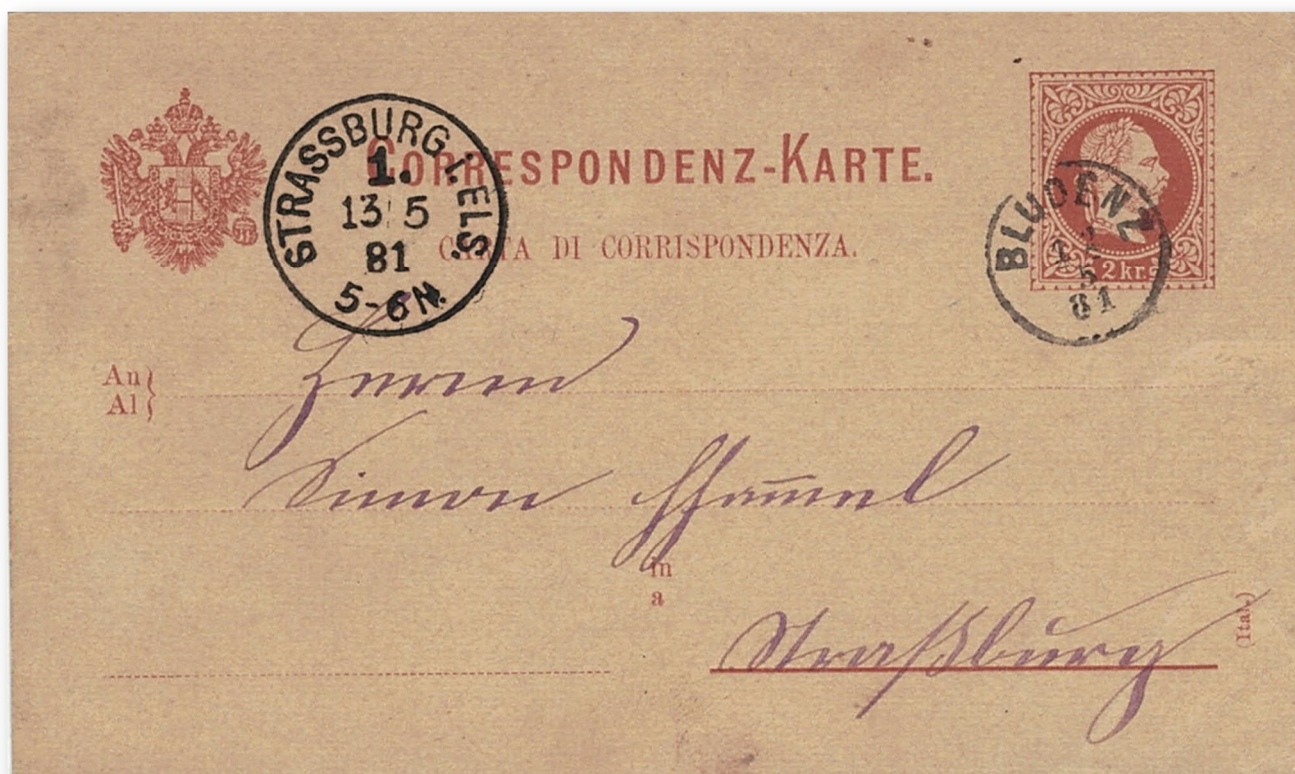 CORRESPONDENZ-KARTE.
CARTA DI CORRISPONDENZA.
STRASSBURG I. ELS.
1.
13/5
81
5-6N.
BLUDENZ
5
81
2 kr.
An
Al
Herrn
Simon
in
a
Straßburg
(Ital.)